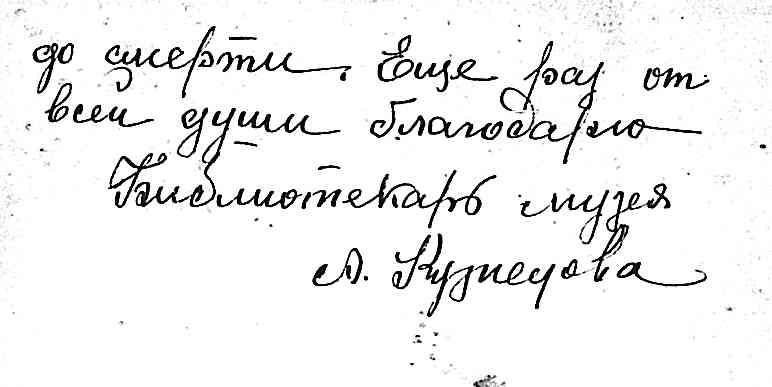 до смерти. Еще раз от
всей души благодарю
Библиотекарь музея
А. Кузнецова